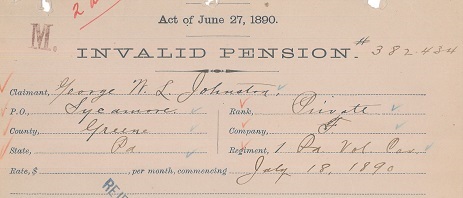 2
Act of June 27, 1890.
M.
INVALID PENSION. # 382.434
Claimant, George W. L. Johnston,
P.O., Sycamore Rank, Private
County, Greene Company, F
State, Pa Regiment, 1 Pa. Vol. Cav.
Rate, $ , per month, commencing July 18, 1890